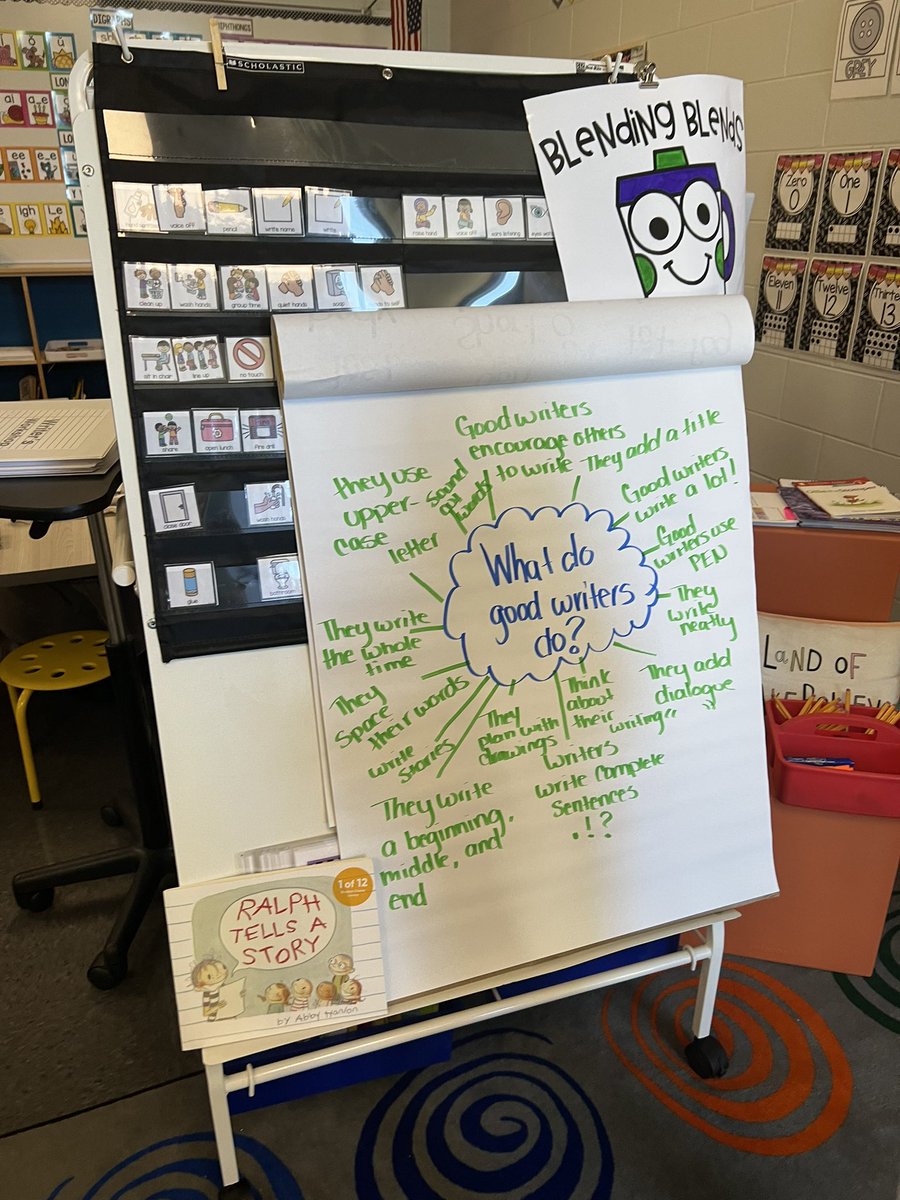 DIGRAPHS
SCHOLASTIC
BLENDING BLENDS
GREY
voice off
pencil
write name
write
raise hand
voice off
ears listening
clean up
wash hands
group time
quiet hands
soap
sit in chair
line up
no touch
share
open lunch
fire drill
close door
wash hands
glue
bathroom
Zero
0
One
1
Eleven
11
Twelve
12
13
Good writers
encourage others
to write
They add a title
Good writers
write a lot!
Good
writers use
PEN
They
write
neatly
They add
dialogue
" "
Think
about
their
writing
writers
write complete
sentences
. ! ?
They
plan with
drawings
They write
a beginning,
middle, and
end
write
stories
They
space
their words
They write
the whole
time
they use
upper-
case
letter
sound
out
words
What do
good writers
do?
LAND OF
1 of 12
RALPH
TELLS A
STORY
by Abby Hanlon